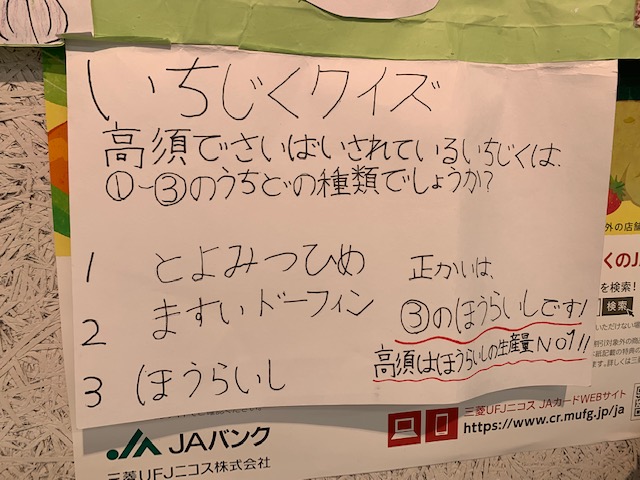 いちじくクイズ
高須でさいばいされているいちじくは、
①~③のうちどの種類でしょうか?
1 とよみつひめ
2 ますいドーフィン
3 ほうらいし
正かいは、
③のほうらいしです!
高須はほうらいしの生産量No1!!
外の店舗
くのJA
を検索!
検索
JAバンク
三菱UFJニコス株式会社
三菱UFJニコス JAカードWEBサイト
https://www.cr.mufg.jp/ja